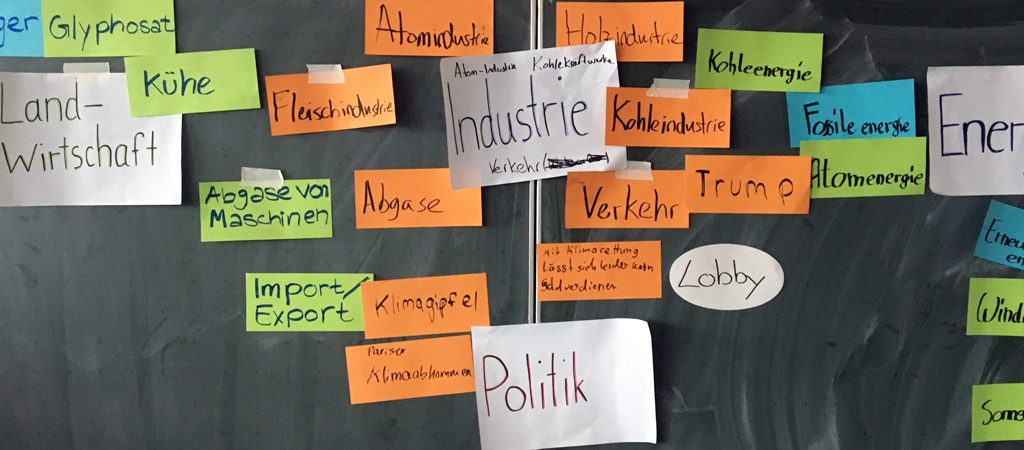 ger
Glyphosat
Atomindustrie
Holzindustrie
Kühe
Fleischindustrie
Atom-Industrie Kohlekraftwerke
Industrie
Verkehr
Kohleenergie
Land-
Wirtschaft
Kohleindustrie
Fossile energie
Ener
Abgase von
Maschinen
Abgase
Verkehr
Trump
Atomenergie
mit Klimarettung
lässt sich leider kein
Geld verdienen
Lobby
Erneu
en
Import/
Export
Klimagipfel
Wind
Pariser
Klimaabkommen
Politik
Sonne